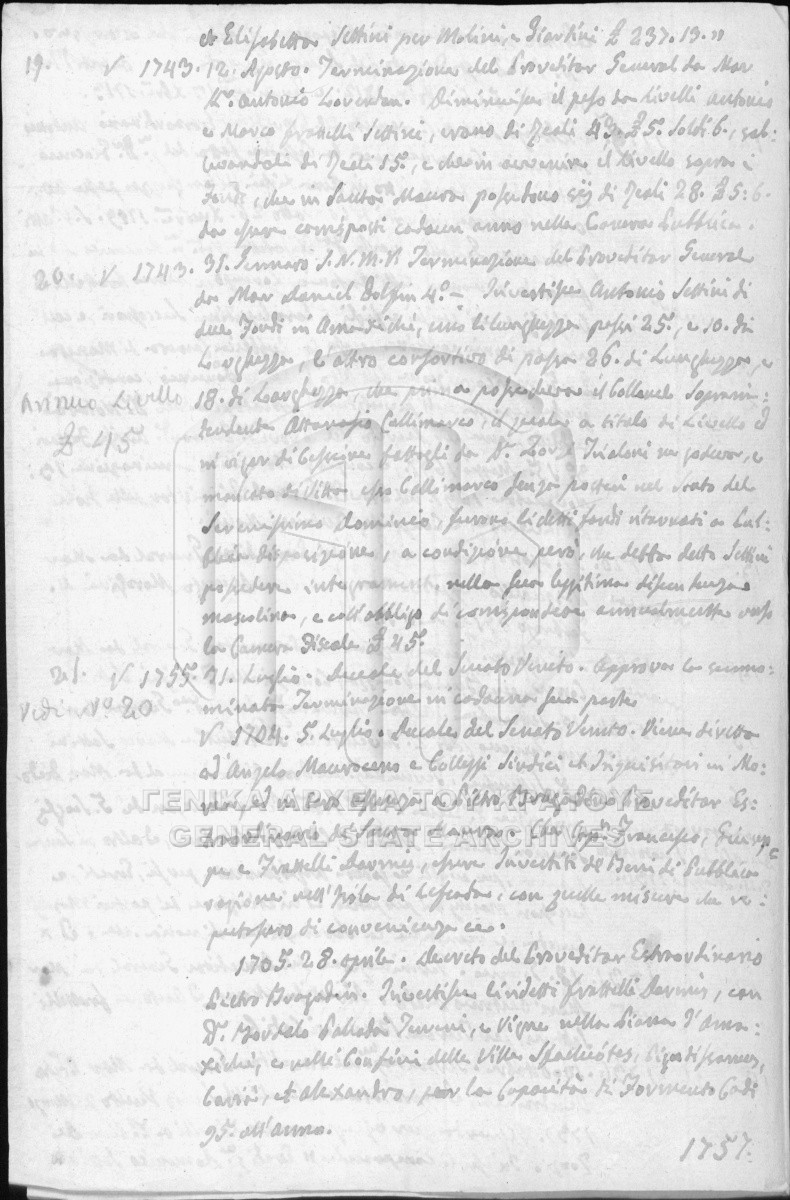 et Elisabetta Settini per Molini, e Giardini £ 237.13."
19. V 1743. 12. Agosto. Terminazione del Proveditor General da Mar
K.r Antonio Loredan. Diminuisse il peso de Livelli Antonio
e Marco fratelli Settini, erano di Reali 43. £ 5. Soldi 6.,
di Reali 15., e che in avvenire il Livello sopra i
Fondi, che in Santa Maura possedono sij di Reali 28. £ 5:6.
da esser corrisposti cadaun anno nella Camera Pubblica.
20. V 1743. 31. Gennaro S.N.M.V. Terminazione del Proveditor General
da Mar Daniel Dolfin 4.o - Investisse Antonio Settini di
due Fondi in Amaxichi, uno in lunghezza passi 25., e 10. di
Larghezza, l'altro consortivo di passa 26. di Lunghezza, e
Annuo Livello
£ 45
18. di Larghezza, che prima possedeva il Collonel Soprain-
tendente Attanasio Callimarco, il quale a titolo di Livello ed
in vigor di Cessione fattagli da D.r Zorzi Trialoni ne godeva, e
mancato di Vitta esso Callimarco senza posteri nel Stato del
Serenissimo Dominio, furono li detti fondi ritornati a Pub-
blica disposizione, a condizione però, che debba detto Settini
possedere integramente nella sua legittima discendenza
mascolina, e coll'obbligo di corrisponder annualmente verso
la Camera Fiscale £ 45.
21. V 1755. 31. Luglio. Ducale del Senato Veneto. Approva la sunno-
Vedi N.o 20
minata Terminazione in cadauna sua parte
V 1704. 5. Luglio. Ducale del Senato Veneto. Viene diretta
ad Angelo Mauroceno e Colleghi Sindici et Inquisitori in
ed in loro assenza a Pietro Bragadin Proveditor Es-
traordinario di Santa Maura. Che Francesco, Giusep-
pe e Frattelli Dermis, esser Investiti di Beni di Pubblica
ragione nell'Isola di Leucada, con quelle misure che re-
putassero di convenienza ec.
1705. 28. Aprile. Decreto del Proveditor Estraordinario
Pietro Bragadin. Investisse li ridetti frattelli Dermis, con
D.r Pallada Terreni, e Vigne nella Piana d'Ama-
xichi, e nelli Confini delle Ville
Carià, et Alexandro, per la Capacità di Formento Cadi
95. all'anno.
1757.
ΓΕΝΙΚΑ ΑΡΧΕΙΑ ΤΟΥ ΚΡΑΤΟΥΣ
GENERAL STATE ARCHIVES